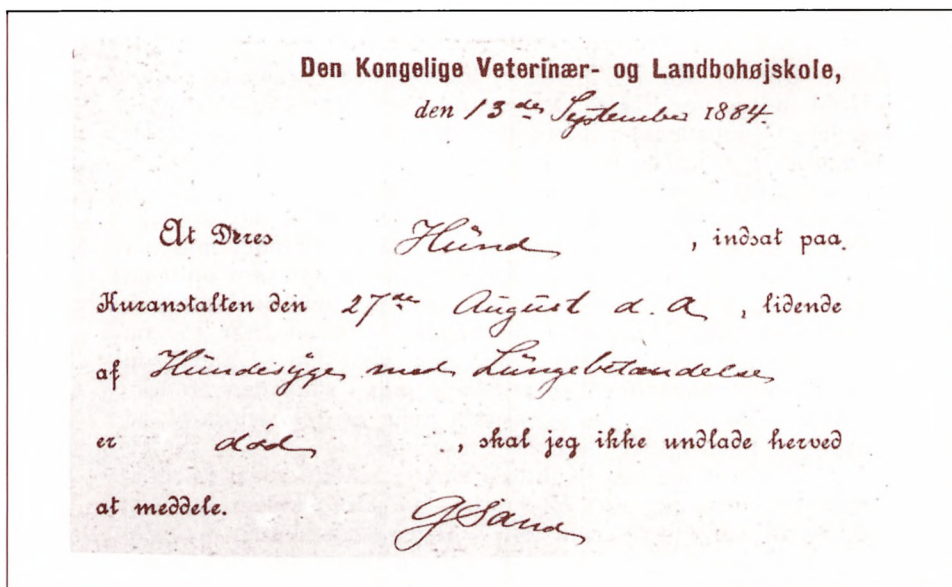 Den Kongelige Veterinær- og Landbohøjskole,
den 13de September 1884.
At Deres Hund , indsat paa
Kuranstalten den 27de August d. A , lidende
af Hundesyge med Lungebetændelse
er død , skal jeg ikke undlade herved
at meddele. GSand